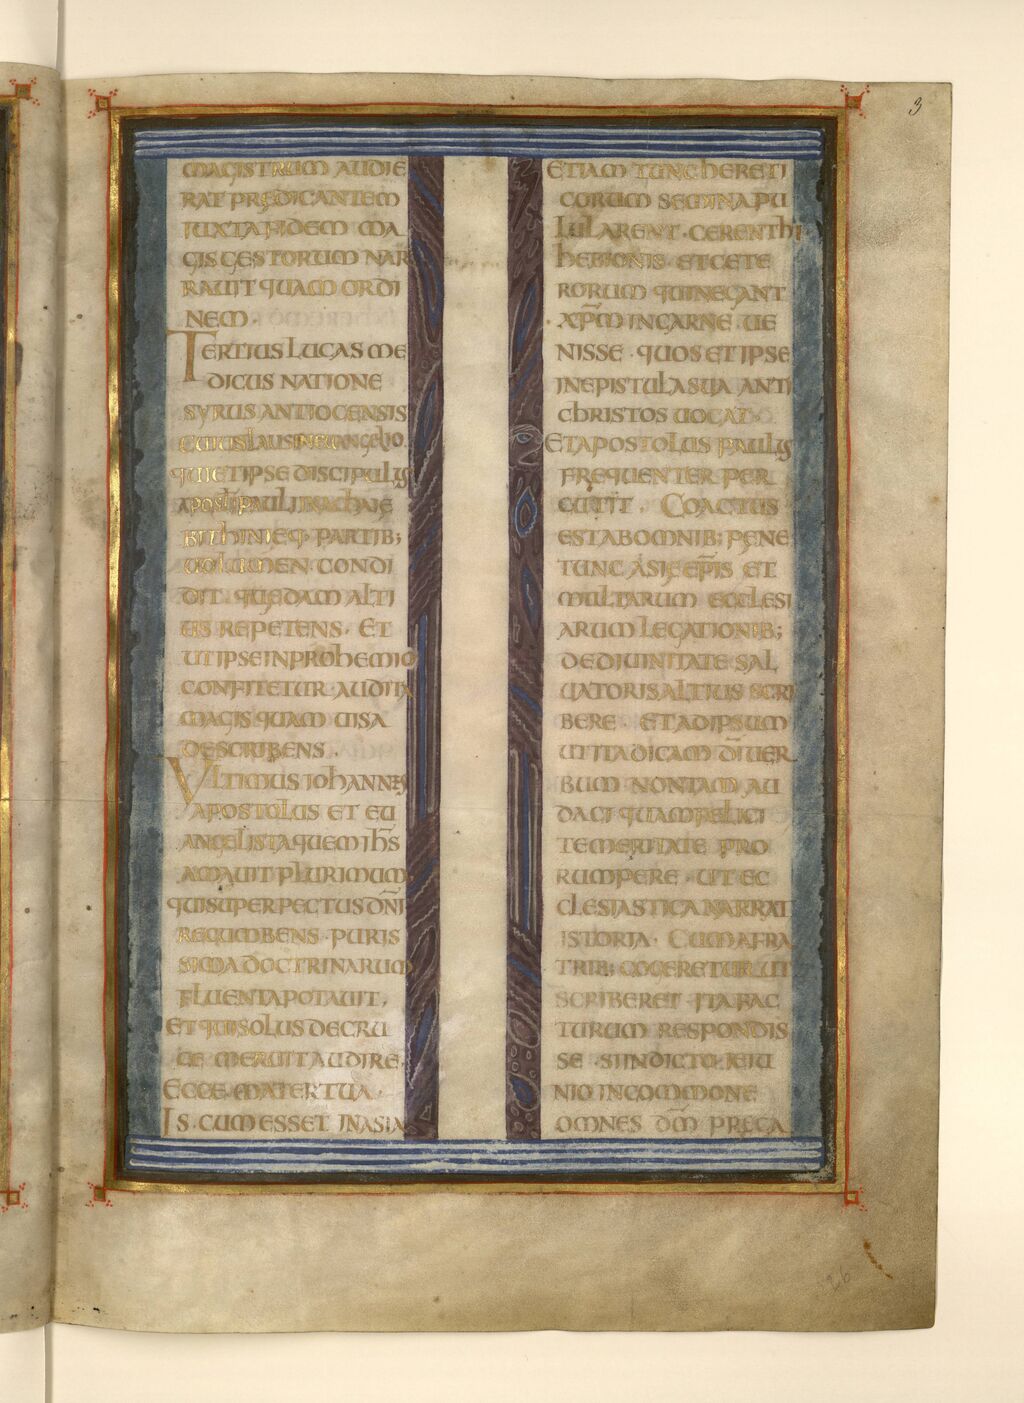 3
MAGISTRUM AUDIE
RAT PREDICANTEM
IUXTA FIDEM MA
GIS GESTORUM NAR
RAUIT QUAM ORDI
NEM.
TERTIUS LUCAS ME
DICUS NATIONE
SYRUS ANTIOCENSIS
CUIUS LAUS IN EUUANGELIO.
QUI ET IPSE DISCIPULUS
APOSTOLI PAULI IN ACHAIE
BITHINIEQ· PARTIB;
UOLUMEN CONDI
DIT · QUEDAM ALTI
US REPETENS · ET
UT IPSE IN PROHEMIO
CONFITETUR AUDITA
MAGIS QUAM UISA
DESCRIBENS ·
VLTIMUS IOHANNES
APOSTOLUS ET EU
ANGELISTA QUEM IHS
AMAUIT PLURIMUM
QUI SUPER PECTUS DNI
RECUMBENS · PURIS
SIMA DOCTRINARUM
FLUENTA POTAUIT,
ET QUI SOLUS DE CRU
CE MERUIT AUDIRE.
ECCE MATER TUA ·
IS · CUM ESSET IN ASIA
ETIAM TUNC HERETI
CORUM SEMINA PU
LULARENT · CERENTHI
HEBIONIS · ET CETE
RORUM QUI NEGANT
XPM IN CARNE UE
NISSE · QUOS ET IPSE
IN EPISTULA SUA ANTI
CHRISTOS UOCAT ·
ET APOSTOLUS PAULUS
FREQUENTER PER
CUTIT · COACTUS
EST AB OMNIB; PENE
TUNC ASIE EPIS ET
MULTARUM ECCLESI
ARUM LEGATIONIB;
DE DIUINITATE SAL
UATORIS ALTIUS SCRI
BERE · ET AD IPSUM
UT ITA DICAM DI UER
BUM NON TAM AU
DACI QUAM FELICI
TEMERITATE PRO
RUMPERE · UT EC
CLESIASTICA NARRAT
ISTORIA · CUM A FRA
TRIB; COGERETUR UT
SCRIBERET · ITA FAC
TURUM RESPONDIS
SE · SI INDICTO IEIU
NIO IN COMMONE
OMNES DM PRECA
26